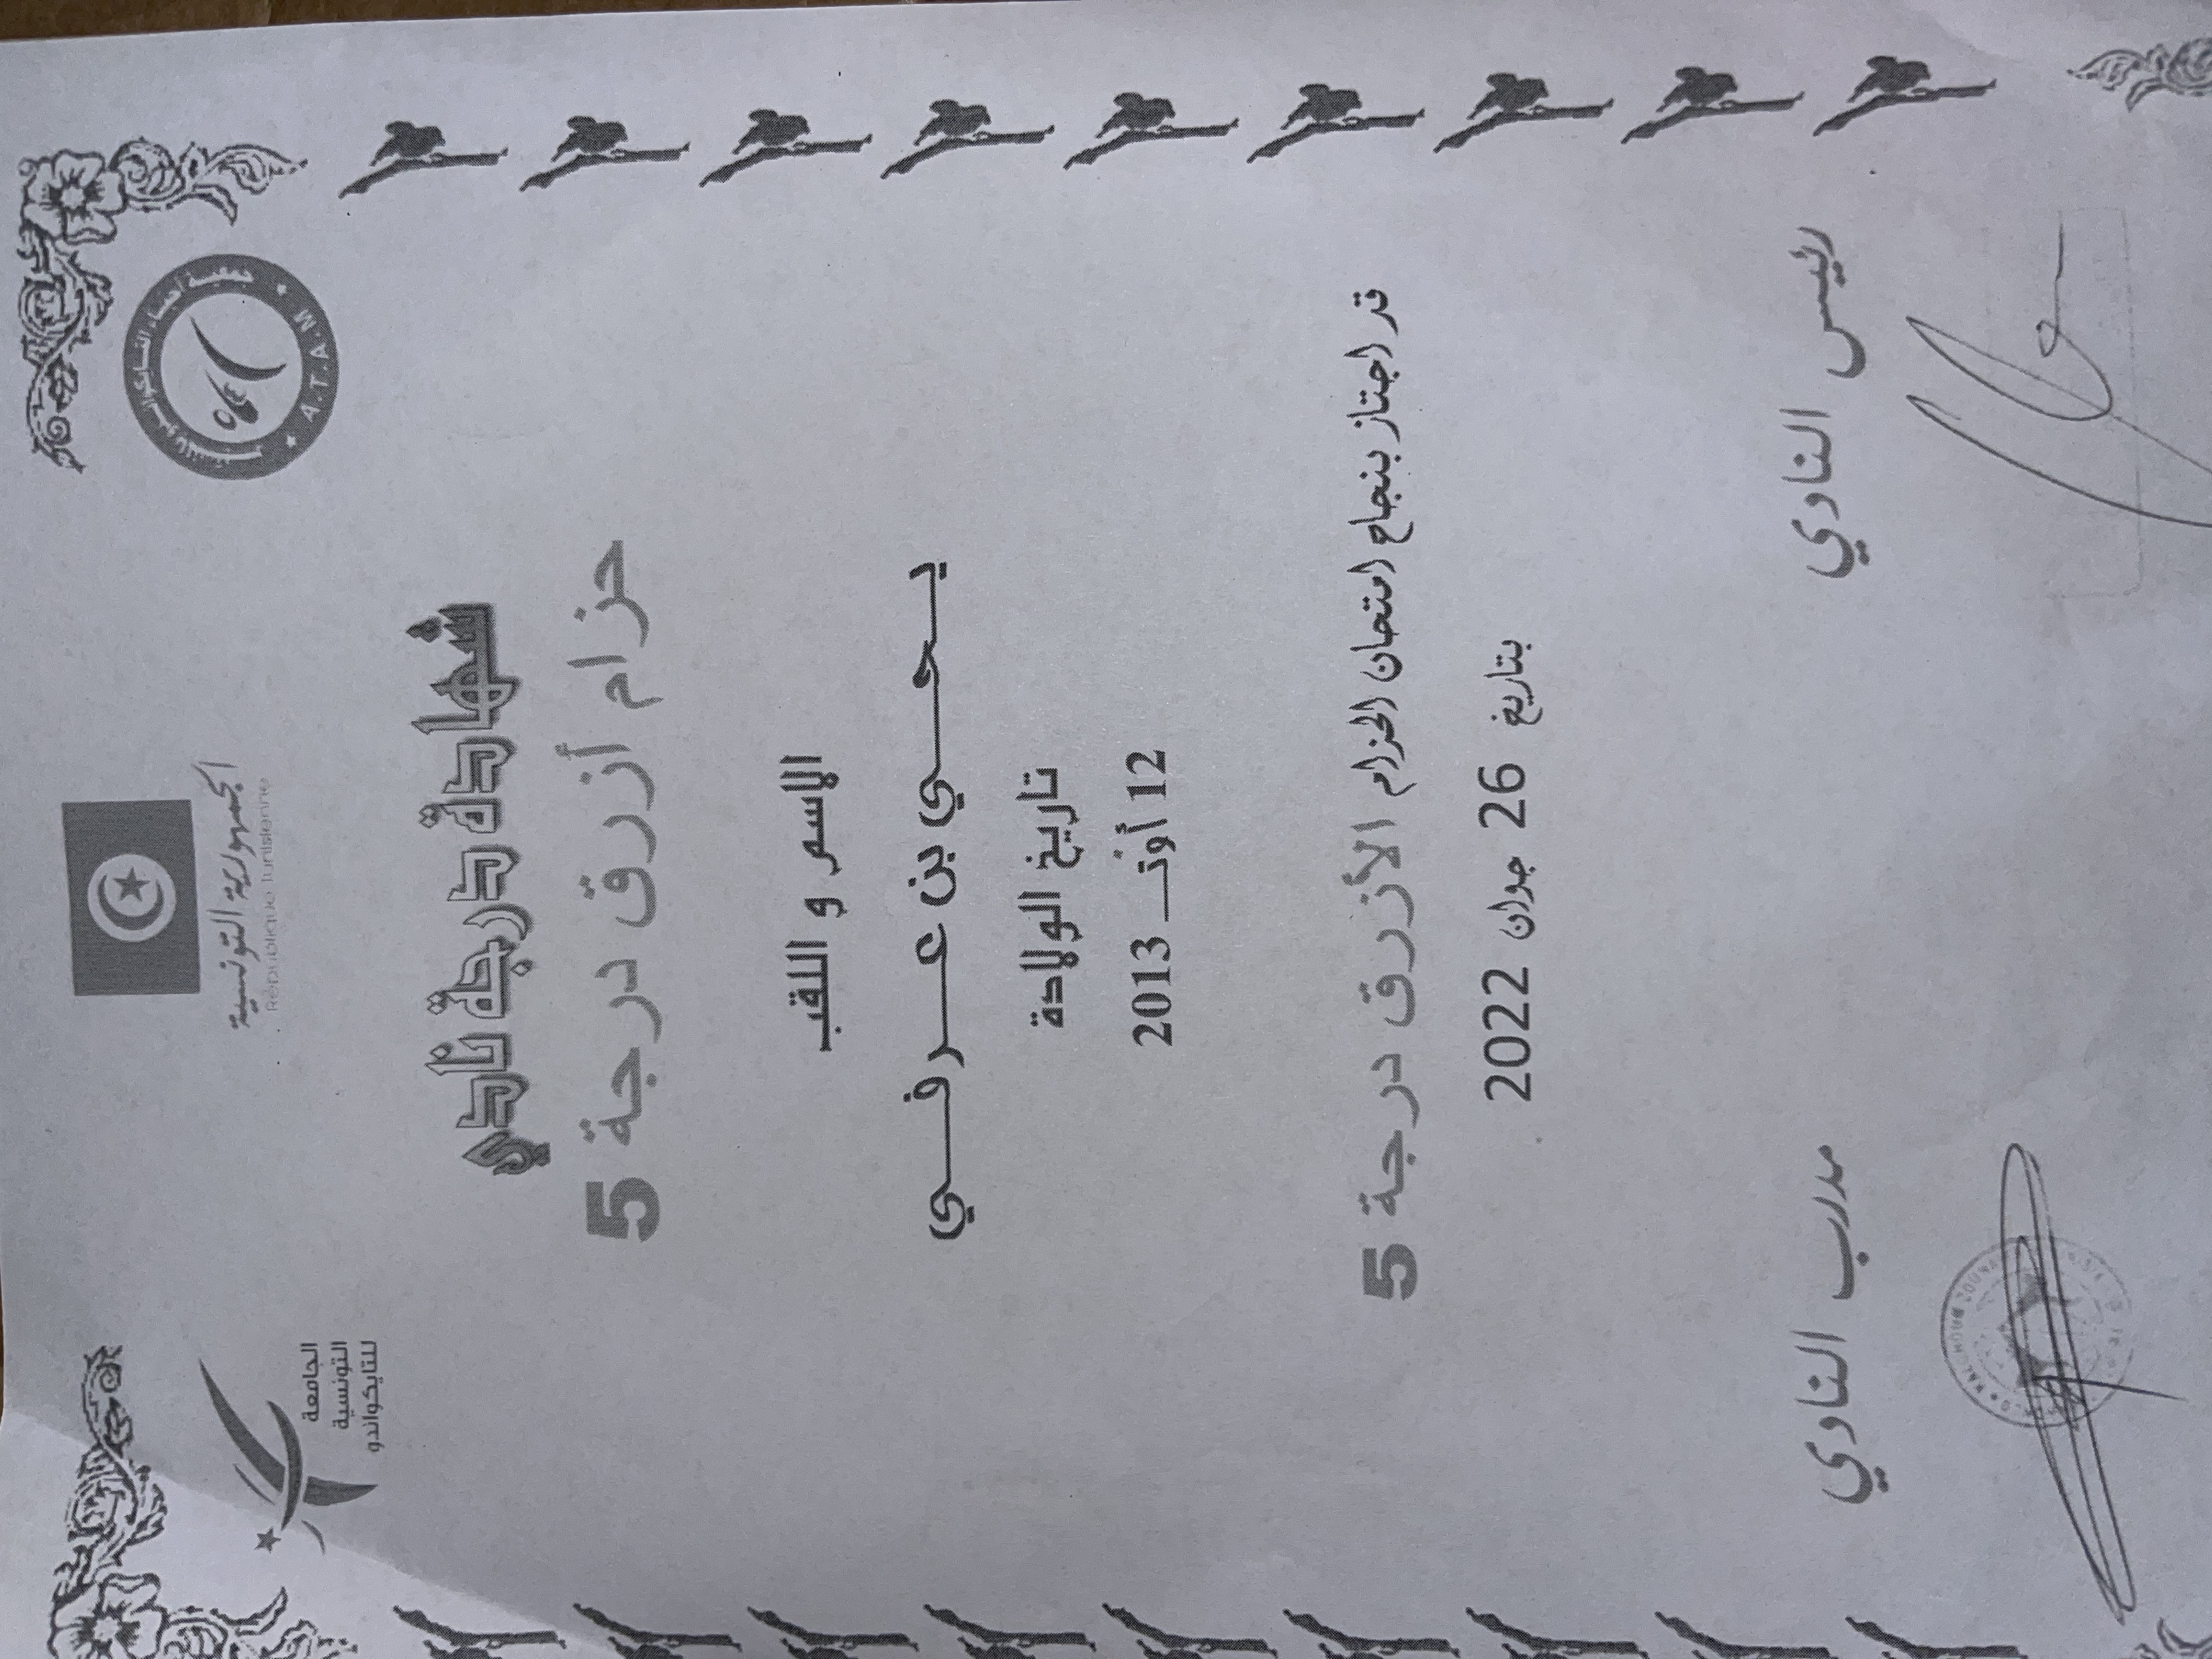 الجمهورية التونسية
République Tunisienne
A.T.A.M
الجامعة
التونسية
للتايكواندو
شهادة درجة نادي
حزام أزرق درجة 5
الاسم و اللقب
يحي بن عرفي
تاريخ الولادة
12 أوت 2013
قد اجتاز بنجاح امتحان الحزام الأزرق درجة 5
بتاريخ 26 جوان 2022
رئيس النادي
مدرب النادي